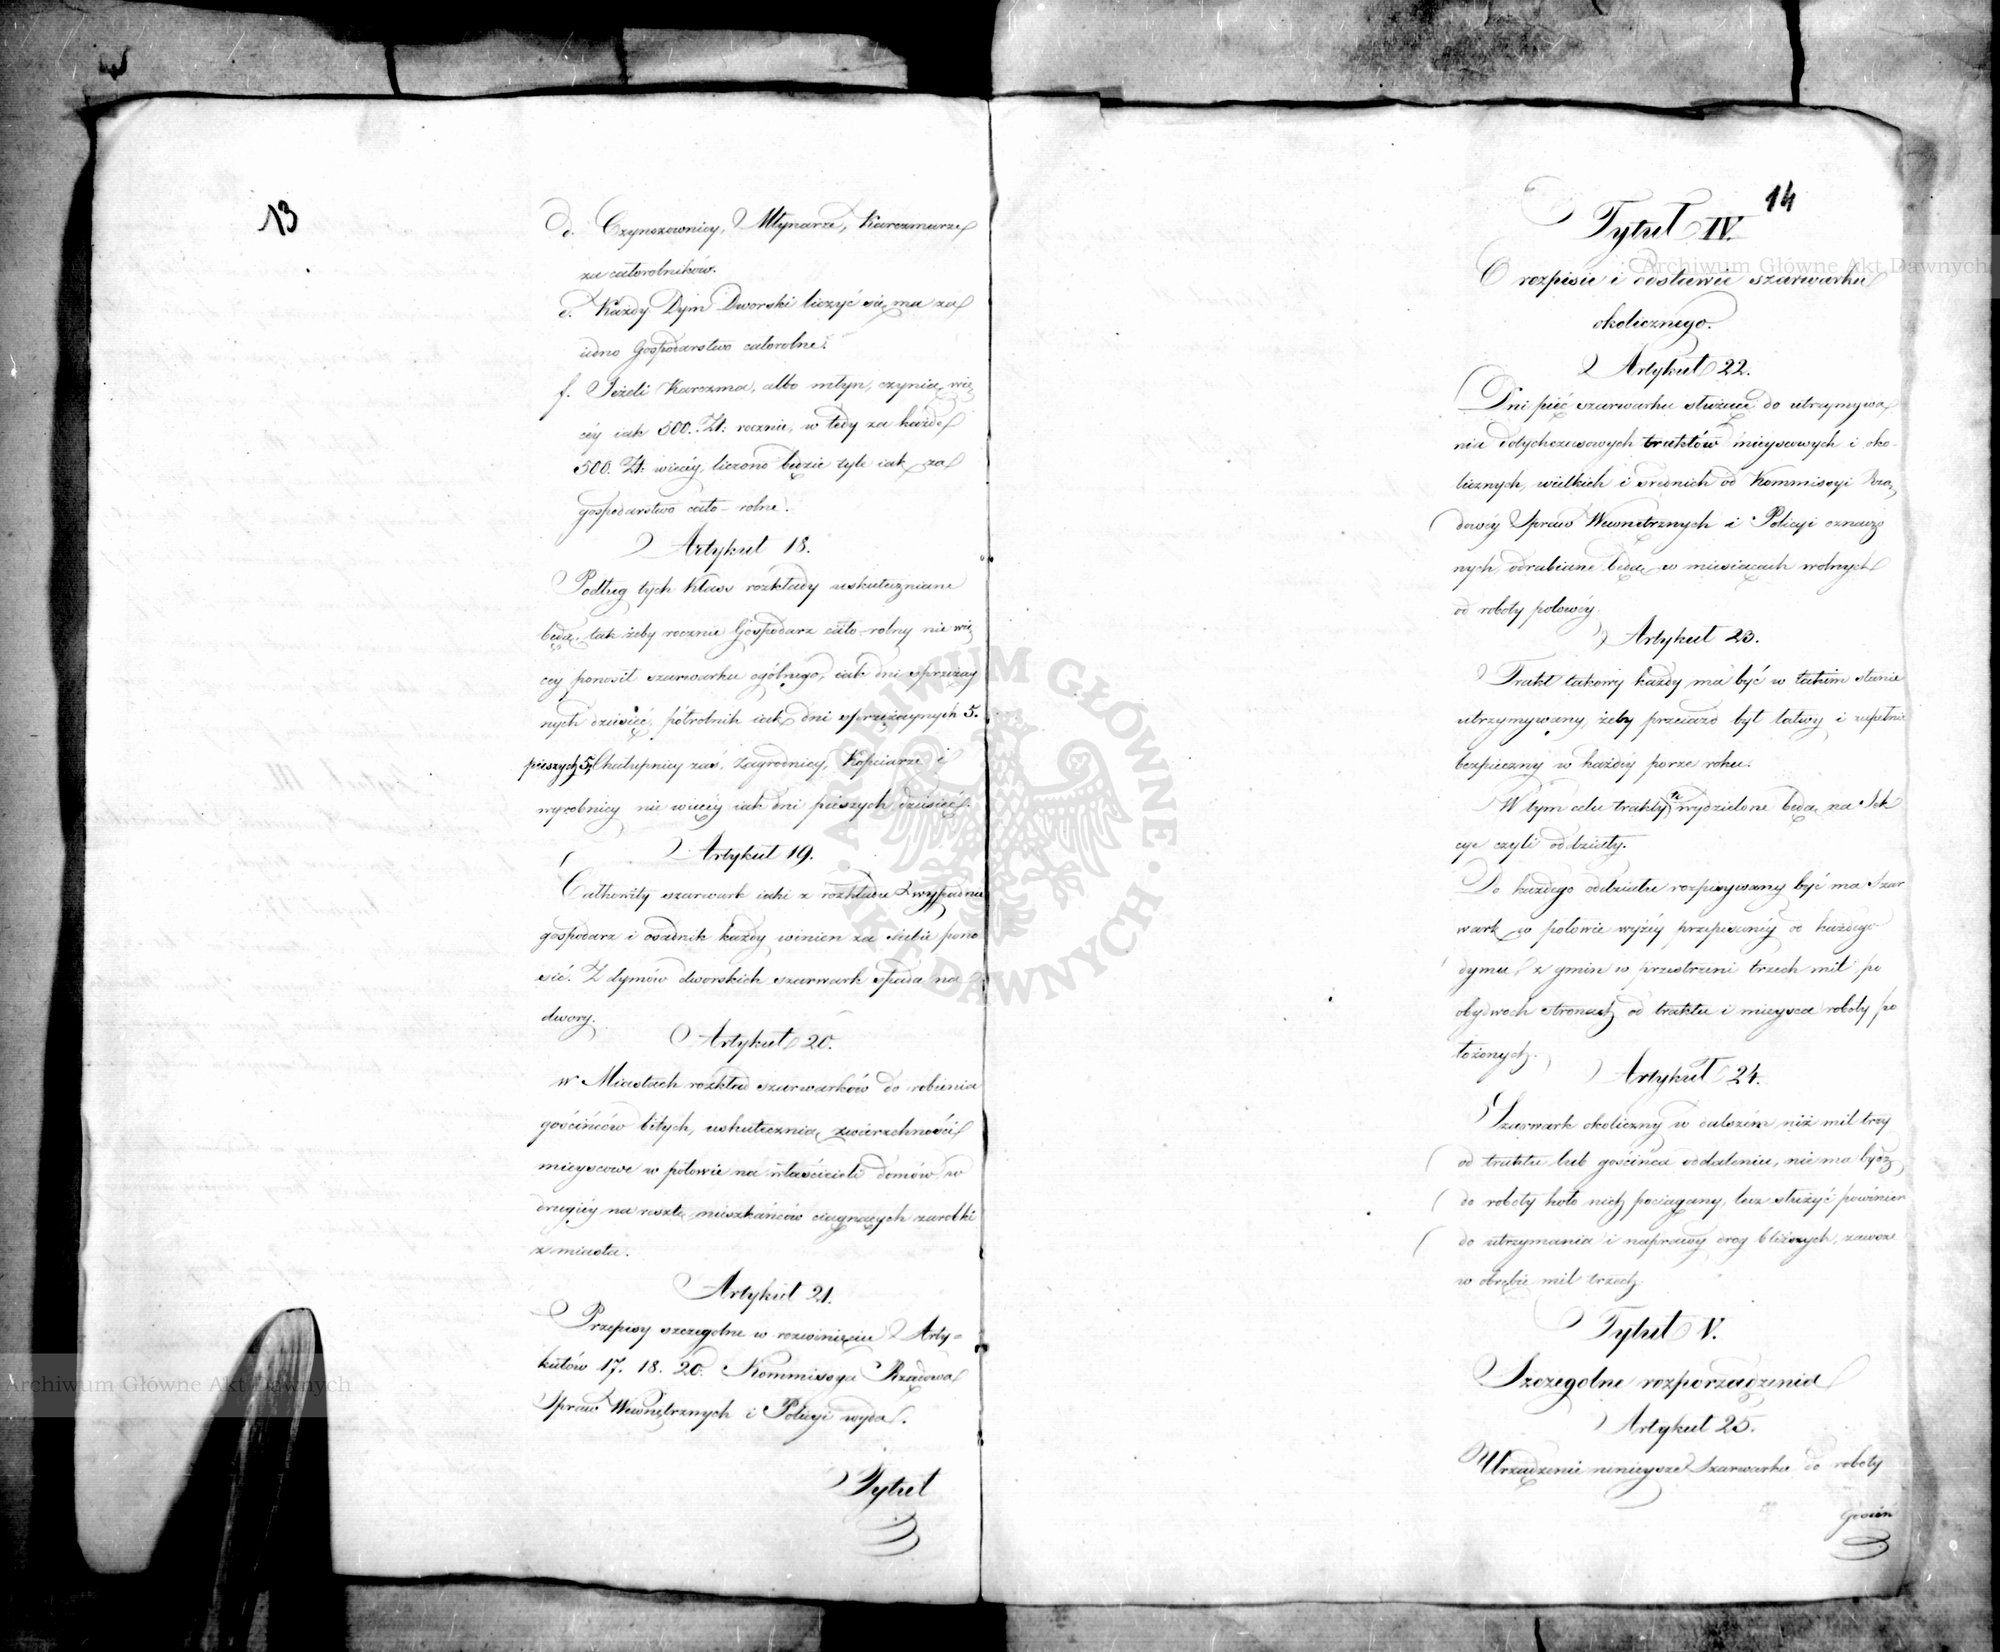 13
d. Czynszownicy, Młynarze, Karczmarze
za całorolników.
e. Każdy Dym Dworski liczyć się ma za
iedno Gospodarstwo całorolne.
f. Jeżeli Karczma, albo młyn, czynią wię
céy iak 500. Zł: rocznie, w tedy za każde
500. Zł: więcéy, liczono będzie tyle iak za
gospodarstwo cało-rolne.
Artykuł 18.
Podług tych Klass rozkłady uskuteczniane
będą, tak żeby rocznie Gospodarz cało-rolny nie wię
cey ponosił szarwarku ogólnego, iak dni sprzężay
nych dziesięć, półrolnik iak dni sprzężaynych 5.
pieszych 5, Chałupnicy zaś, Zagrodnicy, Kopciarze i
wyrobnicy nie więcéy iak dni pieszych dziesięć.
Artykuł 19.
Całkowity szarwark iaki z rozkładu wypadnie
gospodarz i osadnik każdy winien za siebie pono
sić. Z dymów dworskich szarwark spada na
dwory.
Artykuł 20.
w Miastach rozkład szarwarków do robienia
gościńców bitych, uskutecznią zwierzchności
mieyscowe w połowie na właścicieli domów, w
drugiéy na resztę mieszkańców ciągnących zarobki
z miasta.
Artykuł 21.
Przepisy szczególne w rozwinięciu Arty-
kułów 17. 18. 20. Kommissya Rządowa
Spraw Wewnętrznych i Policyi wyda.
Tytuł
14
Tytuł IV.
O rozpisie i odstawie szarwarku
okolicznego.
Artykuł 22.
Dni pięć szarwarku służące do utrzymywa
nia dotychczasowych traktów mieyscowych i oko-
licznych, wielkich i srednich od Kommissyi Rzą
dowéy Spraw Wewnętrznych i Policyi oznaczo
nych, odrabiane będą w miesiącach wolnych
od roboty polowéy.
Artykuł 23.
Trakt takowy każdy ma być w takim stanie
utrzymywany, żeby przeiazd był łatwy i zupełnie
bezpieczny w każdéy porze roku.
W tym celu trakty te wydzielone będą na Sek
cye czyli oddziały.
Do każdego oddziału rozpisywany być ma Szar
wark w połowie wyżéy przepisanéy od każdego
dymu z gmin w przestrzeni trzech mil po
obydwoch stronach od traktu i mieysca roboty po
łożonych.
Artykuł 24.
Szarwark okoliczny w dalszém niż mil trzy
od traktu lub gościńca oddaleniu, nie ma bydź
do roboty koło nich pociągany, lecz służyć powinien
do utrzymania i naprawy drog bliższych, zawsze
w obrębie mil trzech.
Tytuł V.
Szczególne rozporządzenia
Artykuł 25.
Urządzenie ninieysze Szarwarku do roboty
Gościń
Archiwum Główne Akt Dawnych
Archiwum Główne Akt Dawnych
· ARCHIWUM GŁÓWNE · AKT DAWNYCH